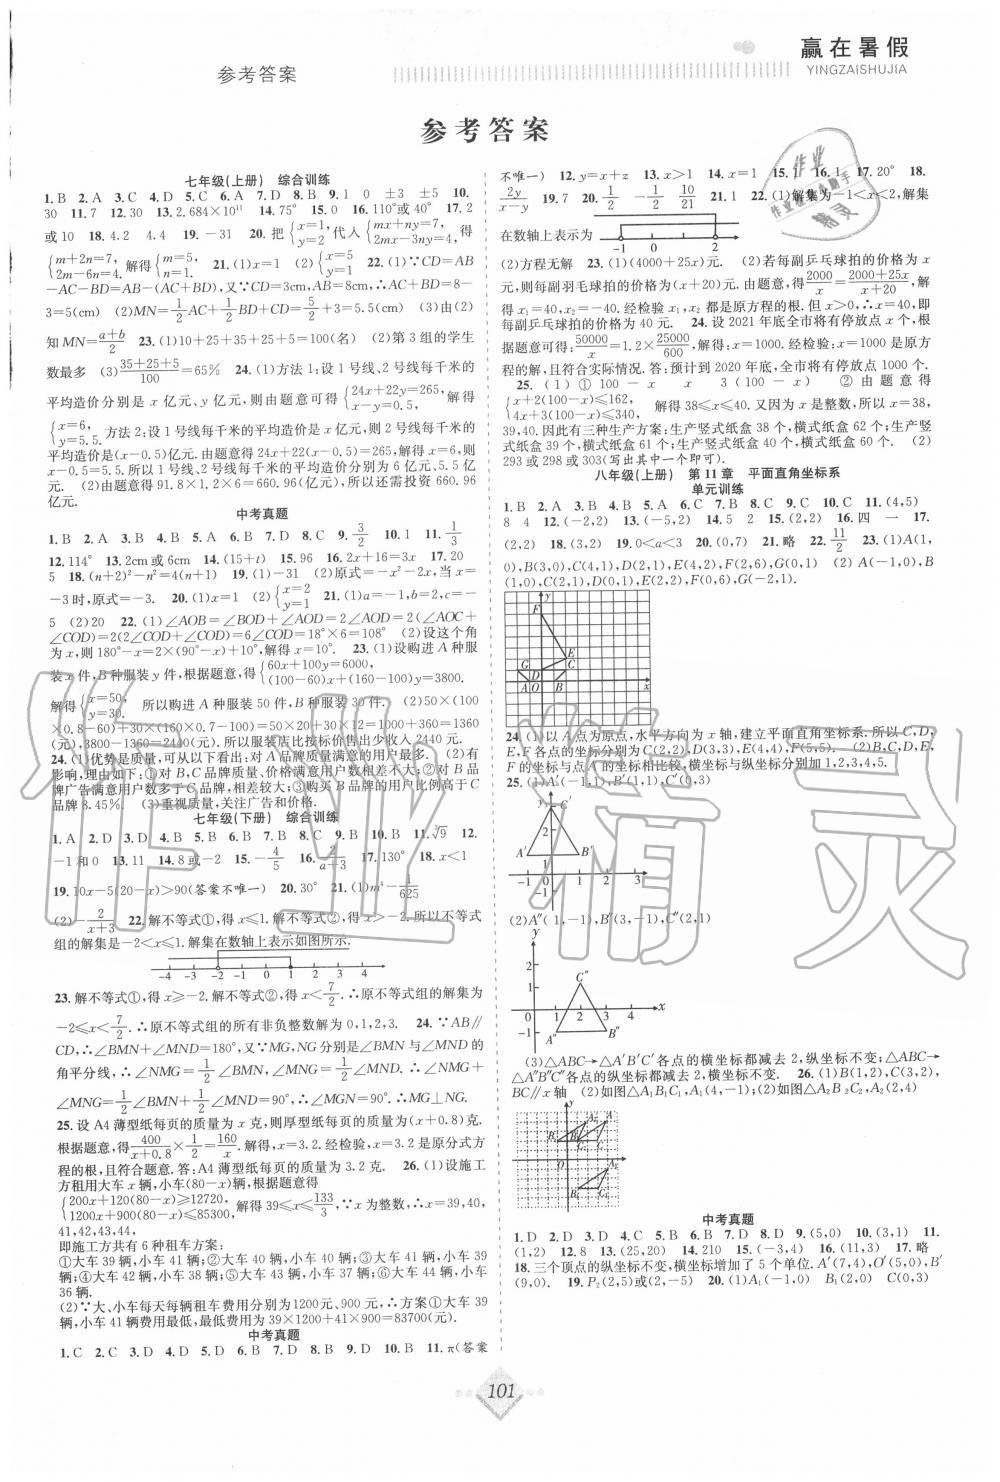 参考答案
赢在暑假
YINGZAISHUJIA
参考答案
七年级(上册) 综合训练
1.B 2.A 3.C 4.D 5.C 6.A 7.D 8.B 9.1 0 ±3 ±5 10.
30 11.7 12.30 13.2.684×10¹¹ 14.75° 15.0 16.110°或40° 17.2
或10 18.4.2 4.4 19.-31 20.把{x=1, y=2 代入{mx+ny=7, 2mx-3ny=4,得
{m+2n=7, 2m-6n=4. 解得{m=5, n=1. 21.(1)x=1 (2){x=5 y=1 22.(1)∵CD=AB
-AC-BD=AB-(AC+BD),又∵CD=3cm,AB=8cm,∴AC+BD=8-
3=5(cm) (2)MN=1/2AC+1/2BD+CD=5/2+3=5.5(cm) (3)由(2)
知MN=(a+b)/2 23.(1)10+25+35+25+5=100(名) (2)第3组的学生
数最多 (3)(35+25+5)/100=65% 24.(1)方法1:设1号线、2号线每千米的
平均造价分别是x亿元、y亿元,则由题意可得{24x+22y=265, x-y=0.5, 解得
{x=6, y=5.5. 方法2:设1号线每千米的平均造价是x亿元,则2号线每千米的
平均造价是(x-0.5)亿元.由题意得24x+22(x-0.5)=265,解得x=6.则x
-0.5=5.5.所以1号线、2号线每千米的平均造价分别为6亿元、5.5亿
元. (2)由题意得91.8×1.2×6=660.96(亿元).答:还需投资660.96
亿元.
中考真题
1.B 2.D 3.A 4.C 5.B 6.B 7.D 8.C 9.3/2 10.1 11.1/3
12.114° 13.2cm或6cm 14.(15+t) 15.96 16.2x+16=3x 17.20
5 18.(n+2)²-n²=4(n+1) 19.(1)-31 (2)原式=-x²-2x,当x=
-3时,原式=-3. 20.(1)x=1 (2){x=2 y=1 21.(1)a=-1,b=2,c=-
5 (2)20 22.(1)∠AOB=∠BOD+∠AOD=2∠AOD=2(∠AOC+
∠COD)=2(2∠COD+∠COD)=6∠COD=18°×6=108° (2)设这个角
为x,则180°-x=2×(90°-x)+10°,解得x=10°. 23.(1)设购进A种服
装x件,B种服装y件,根据题意,得{60x+100y=6000, (100-60)x+(160-100)y=3800.
解得{x=50, y=30. 所以购进A种服装50件,B种服装30件. (2)50×(100
×0.8-60)+30×(160×0.7-100)=50×20+30×12=1000+360=1360
(元),3800-1360=2440(元).所以服装店比按标价售出少收入2440元.
24.(1)优势是质量,可以从以下看出:对A品牌质量满意的用户最多. (2)有
影响,理由如下:①对B,C品牌质量、价格满意用户数相差不大;②对B品
牌广告满意用户数多于C品牌,且相差较大;③购买B品牌的用户比例高于C
品牌8.45%. (3)重视质量,关注广告和价格.
七年级(下册) 综合训练
1.A 2.D 3.D 4.B 5.B 6.B 7.B 8.C 9.B 10.B 11.∛9 12.
-1和0 13.11 14.8或-2 15.-4/5 16.2/(a-3) 17.130° 18.x<1
19.10x-5(20-x)>90(答案不唯一) 20.30° 21.(1)m⁴-1/625
(2)-2/(x+3) 22.解不等式①,得x≤1.解不等式②,得x>-2.所以不等式
组的解集是-2<x≤1.解集在数轴上表示如图所示.
-4 -3 -2 -1 0 1 2 3 4
23.解不等式①,得x≥-2.解不等式②,得x<7/2.∴原不等式组的解集为
-2≤x<7/2.∴原不等式组的所有非负整数解为0,1,2,3. 24.∵AB∥
CD,∴∠BMN+∠MND=180°,又∵MG,NG分别是∠BMN与∠MND的
角平分线,∴∠NMG=1/2∠BMN,∠MNG=1/2∠MND.∴∠NMG+
∠MNG=1/2∠BMN+1/2∠MND=90°.∴∠MGN=90°.∴MG⊥NG.
25.设A4薄型纸每页的质量为x克,则厚型纸每页的质量为(x+0.8)克.
根据题意,得400/(x+0.8)×1/2=160/x.解得:x=3.2.经检验,x=3.2是原分式方
程的根,且符合题意.答:A4薄型纸每页的质量为3.2克. 26.(1)设施工
方租用大车x辆,小车(80-x)辆,根据题意得
{200x+120(80-x)≥12720, 1200x+900(80-x)≤85300, 解得39≤x≤133/3,∵x为整数,∴x=39,40,
41,42,43,44,
即施工方共有6种租车方案:
①大车39辆,小车41辆;②大车40辆,小车40辆;③大车41辆,小车39
辆;④大车42辆,小车38辆;⑤大车43辆,小车37辆;⑥大车44辆,小车
36辆.
(2)∵大、小车每天每辆租车费用分别为1200元、900元,∴方案①大车39
辆,小车41辆费用最低,最低费用为39×1200+41×900=83700(元).
中考真题
1.C 2.C 3.D 4.D 5.D 6.B 7.D 8.B 9.D 10.B 11.π(答案
不唯一) 12.y=x+z 13.x>1 14.x=1 15.1 16.1 17.20° 18.
2y/(x-y) 19.7 20.1/2 -1/2 10/21 21.1 22.(1)解集为-1<x<2,解集
在数轴上表示为
-1 0 2
(2)方程无解 23.(1)(4000+25x)元. (2)若每副乒乓球拍的价格为x
元,则每副羽毛球拍的价格为(x+20)元.由题意,得2000/x=(2000+25x)/(x+20),解
得x₁=40,x₂=-40.经检验x₁,x₂都是原方程的根.但x>0,∴x=40,即
每副乒乓球拍的价格为40元. 24.设2021年底全市将有停放点x个,根
据题意可得:50000/x=1.2×25000/600,解得:x=1000.经检验:x=1000是原方程
的解,且符合实际情况.答:预计到2020年底,全市将有停放点1000个.
25.(1)①100-x x 3(100-x) ②由题意得
{x+2(100-x)≤162, 4x+3(100-x)≤340, 解得38≤x≤40.又因为x是整数,所以x=38,
39,40.因此有三种生产方案:生产竖式纸盒38个,横式纸盒62个;生产竖式
纸盒39个,横式纸盒61个;生产竖式纸盒40个,横式纸盒60个. (2)
293或298或303(写出其中一个即可)
八年级(上册) 第11章 平面直角坐标系
单元训练
1.B 2.A 3.A 4.C 5.B 6.C 7.B 8.B 9.C 10.C 11.(4,5)
8 4 12.(-2,2) 13.(-5,2) 14.5 2 15.(2,2) 16.四 一 17.
(2,2) 18.(3,2) 19.0<a<3 20.(0,7) 21.略 22.11/2 23.(1)A(1,
0),B(3,0),C(4,1),D(2,1),E(4,2),F(2,6),G(0,1) (2)A(-1,0),B
(1,0),C(2,1),D(0,1),E(2,2),F(0,6),G(-2,1).
y
F
E
G C
D
A O B x
24.(1)以A点为原点,水平方向为x轴,建立平面直角坐标系.所以C,D,
E,F各点的坐标分别为C(2,2),D(3,3),E(4,4),F(5,5). (2)B,C,D,
E,F的坐标与点A的坐标相比较,横坐标与纵坐标分别加1,2,3,4,5.
25.(1)A′(-1,1),B′(1,1),C′(0,3)
C′
2
A′ B′
-1 0 1 2 3
(2)A″(1,-1),B″(3,-1),C″(2,1)
y
2
1
C″
0 1 2 3 4 x
-1
A″ B″
(3)△ABC→△A′B′C′各点的横坐标都减去2,纵坐标不变;△ABC→
△A″B″C″各点的纵坐标都减去2,横坐标不变. 26.(1)B(1,2),C(3,2),
BC∥x轴 (2)如图△A₁B₁C₁,A₁(4,-1);(2)如图△A₂B₂C₂,A₂(2,4)
中考真题
1.D 2.D 3.D 4.C 5.B 6.B 7.D 8.D 9.(5,0) 10.(3,1) 11.
(1,2) 12.8 13.(25,20) 14.210 15.(-3,4) 16.(11,3) 17.略
18.三个顶点的纵坐标不变,横坐标增加了5个单位.A′(7,4),O′(5,0),B′
(9,0). 19.P₂(2,5)或(2,-5) 20.(1)A(-1,0) B(2,0) C(0,3)
101